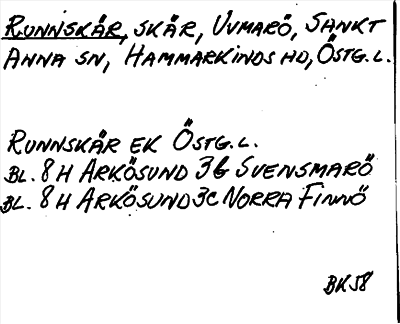 RUNNSKÄR, SKÄR, UVMARÖ, SANKT
ANNA SN, HAMMARKINDS HD, ÖSTG.L.
RUNNSKÄR EK ÖSTG.L.
BL. 8H ARKÖSUND 3b SVENSMARÖ
BL. 8H ARKÖSUND 3C NORRA FINNÖ
BK58